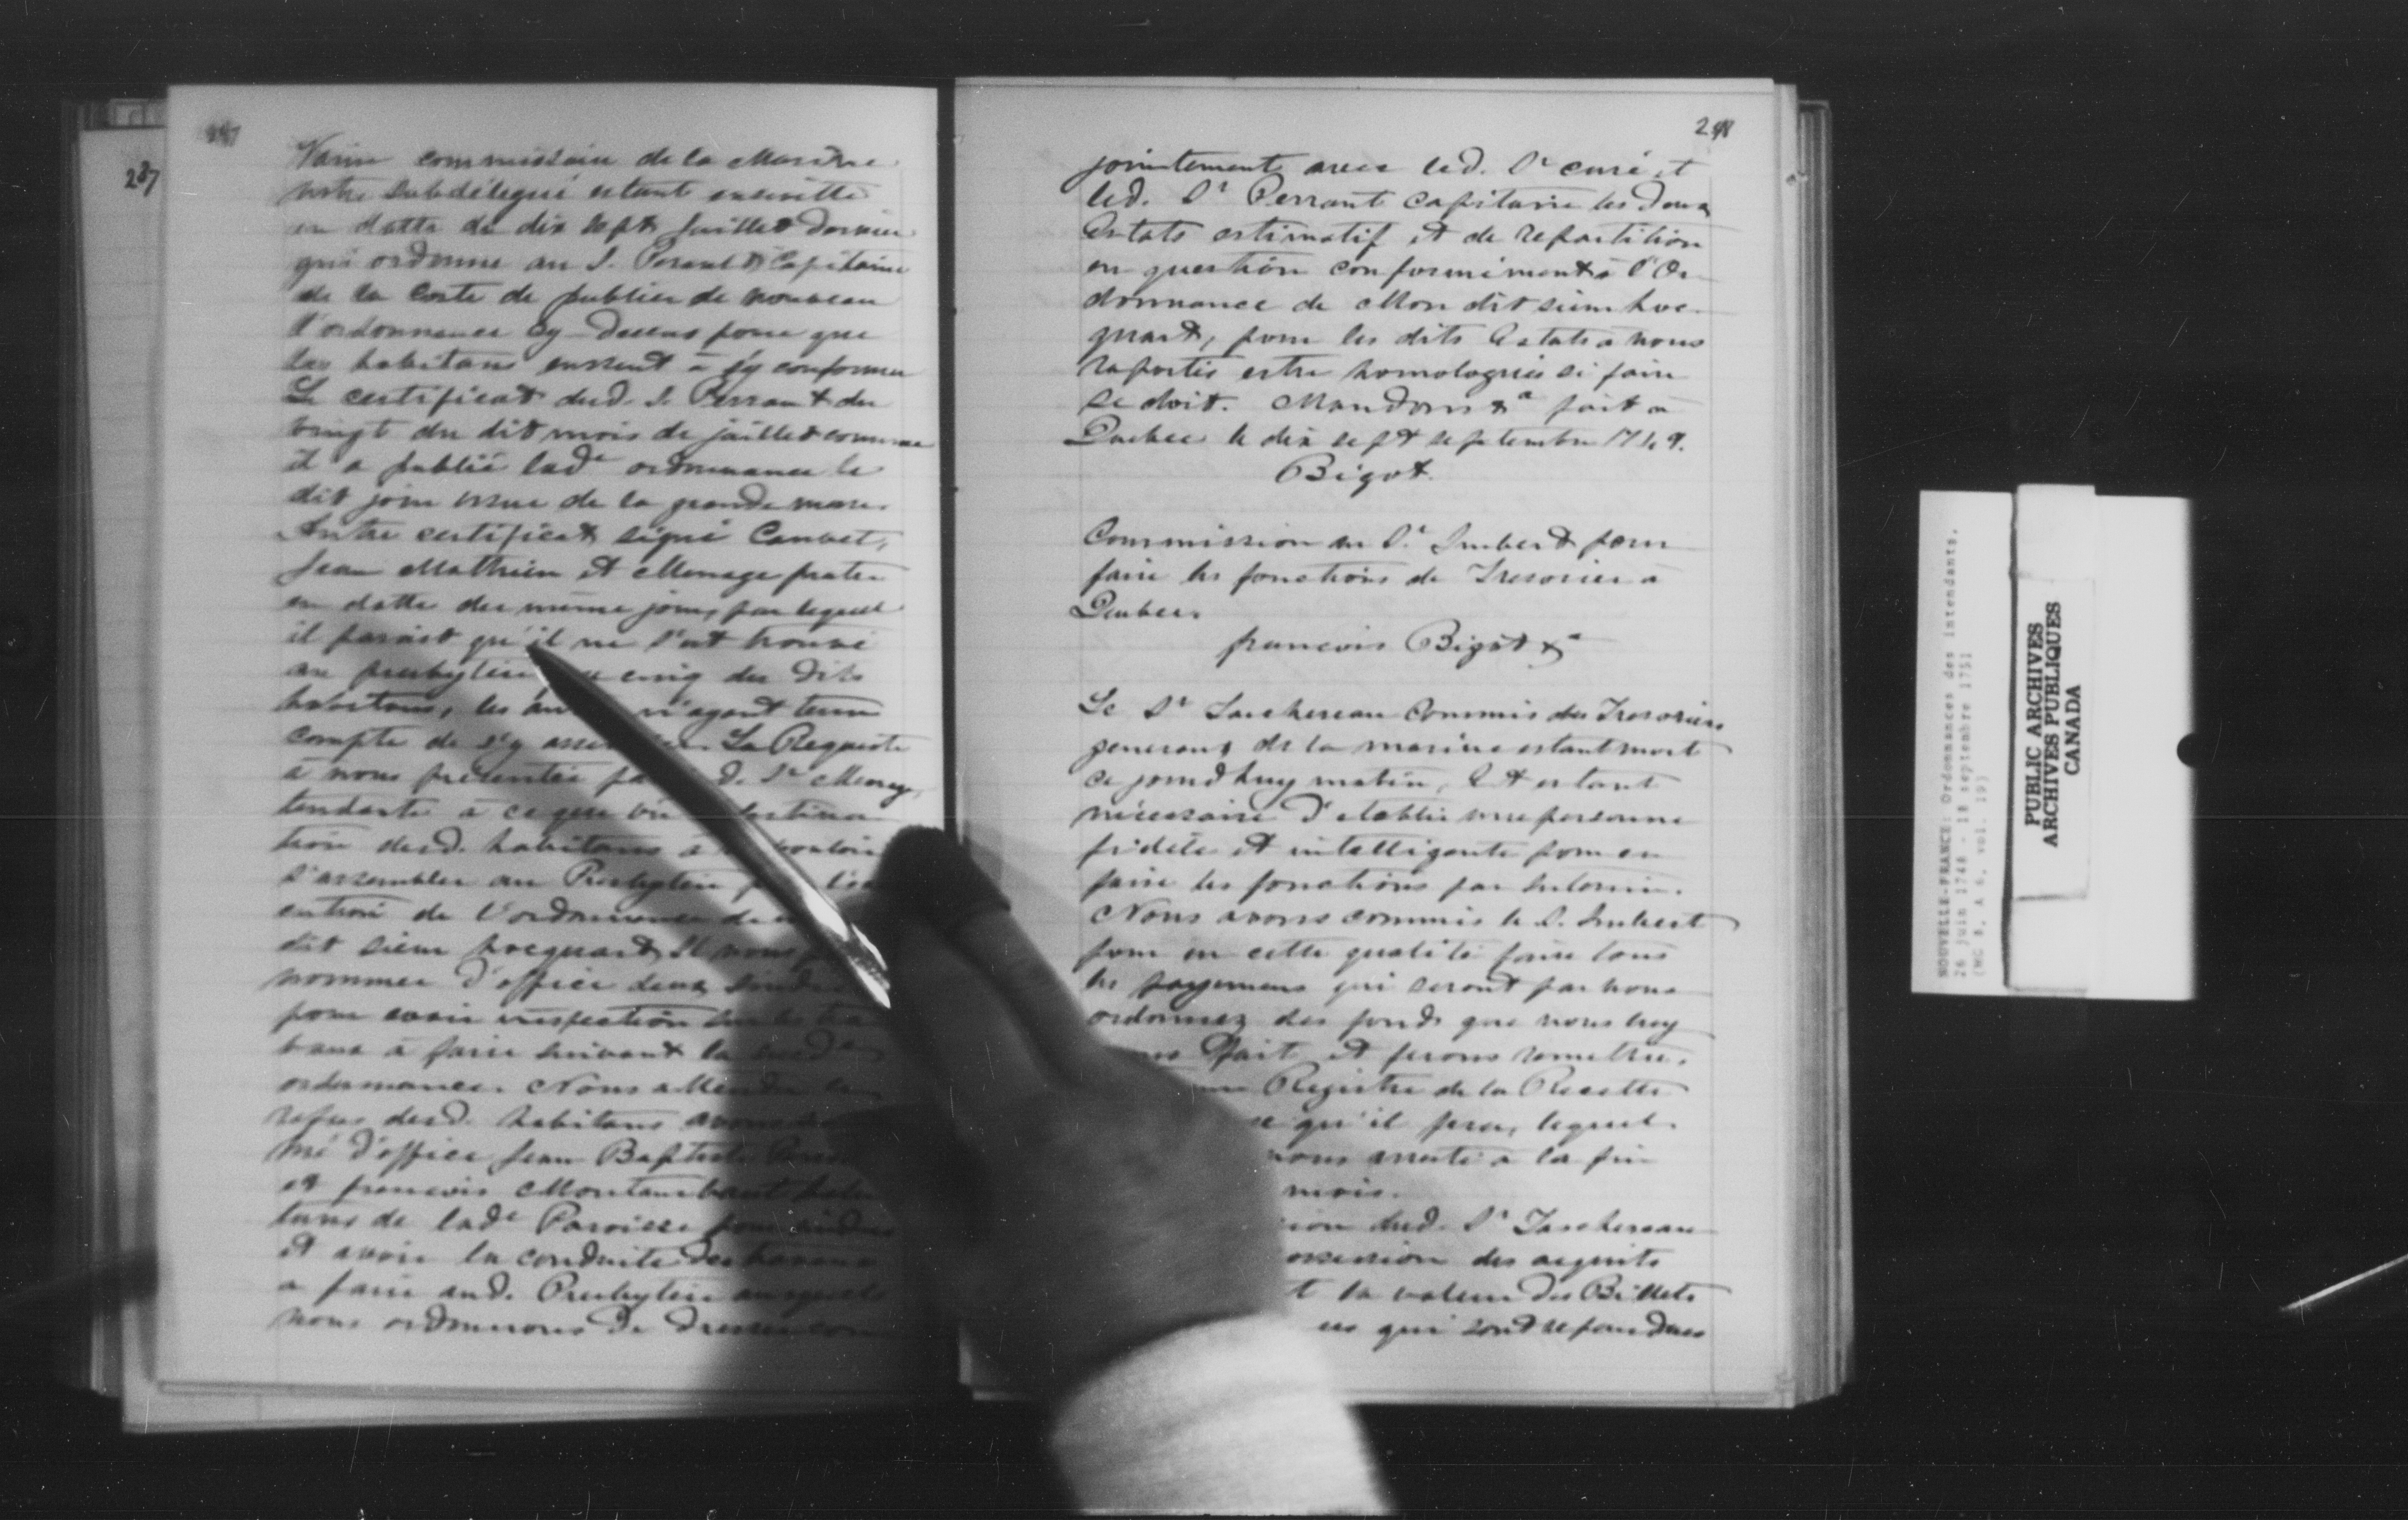 237
Varin commissaire de la Marine
notre subdelegué estant en cette
en datte du dix sept Juillet dernier
qui ordonne au S. Perault Capitaine
de la Coste de publier de nouveau
l'ordonnance cy dessus pour que
les habitans eussent a s'y conformer
Le certificat dud. S. Perrault du
vingt du dit mois de juillet comme
il a publié lad.e ordonnance le
dit jour issue de la grande messe.
Autre certificat signé
Jean Mathieu et Menage
en datte du même jour, par lequel
il paroist qu'il ne s'est trouvé
au presbytere cinq des dits
habitans, les n'ayant tenu
compte de s'y La Requeste
à nous présentée d. Sr
tendante à ce que vû
tion desd. habitans à
s'assembler au Presbytere
cution de l'ordonnance de
dit sieur hocquart Il nous
nommer d'office deux
pour avoir inspection sur les
vaux à faire suivant la
ordonnance. Nous attendu le
refus desd. habitans avons
mé d'office Jean Baptiste
et francois Montambault
tans de lad.e Paroisse pour
et avoir la conduite des travaux
a faire aud. Presbytere ausquels
nous ordonnons de dresser con
298
jointement avec led. Sr curé et
led. Sr Perrault Capitaine les deux
Estats estimatif et de repartition
en question conformément à l'Or-
donnance de Mon dit sieur hoc-
quart, pour les dits Estats à nous
raportés estre homologués si faire
se doit. Mandons &a fait a
Quebec le dix sept septembre 1749.
Bigot.
Commission au Sr. Imbert pour
faire les fonctions de Tresorier a
Quebec.
francois Bigot &a
Le Sr Taschereau Commis des Tresoriers
generaux de la marine estant mort
ce jourd'huy matin, Et estant
nécessaire d'etablir une personne
fidele et intelligente pour en
faire les fonctions par interim.
Nous avons commis le S. Imbert
pour en cette qualité faire tous
les payemens qui seront par nous
ordonnez des fonds que nous luy
fait et ferons remettre,
Registre de la Recette
qu'il fera, lequel
nous arresté a la fin
mois.
dud. Sr Taschereau
des acquits
t la valeur des Billets
qui sont repandues
NOUVELLE-FRANCE: Ordonnances des intendants,
26 juin 1748 - 18 septembre 1751
(MG 8, A 6, vol. 19)
PUBLIC ARCHIVES
ARCHIVES PUBLIQUES
CANADA